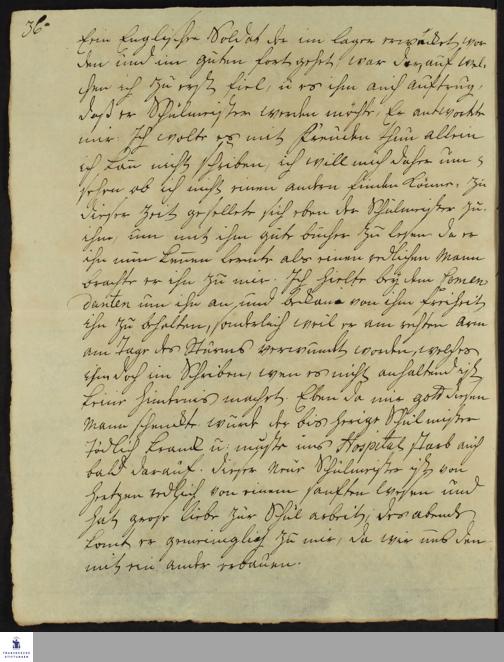 36.
Ein Englischer Soldat der im Lager erwecket wor
den und im guten fort gehet, war der, auf wel-
chen ich zu erst fiel, u es ihm auch auftrug,
daß er Schulmeister werden möchte, Er antwortete
mir: Ich wolte es mit Freuden thun allein
ich kan nicht schreiben, ich will mich daher um
sehen ob ich nicht einen andern finden könne. Zu
dieser Zeit gesellete sich eben der Schulmeister zu
ihm, um mit ihm gute bücher zu lesen da er
ihn nun kennen lernte als einen redlichen Mann
brachte er ihn zu mir. Ich hielte bey dem Comen
danten um ihn an, und bekam von ihm Freiheit
ihn zu behalten, sonderlich weil er am rechten Arm
am Tage des Sturms verwundet worden, welches
ihm doch im Schreiben, wen es nicht anhaltend ist
keine Hindernis machet. Eben da mir gott diesen
Mann schenckte wurde der bis herige Schul meister
tödlich kranck u: muste ins Hospital starb auch
bald darauf. Dieser neue Schulmeister ist von
Hertzen redlich von einem sanften Wesen und
hat große liebe zur Schul arbeit, des abends
komt er gemeiniglich zu mir, da wir uns den
mit ein ander erbauen.
FRANCKESCHE
STIFTUNGEN